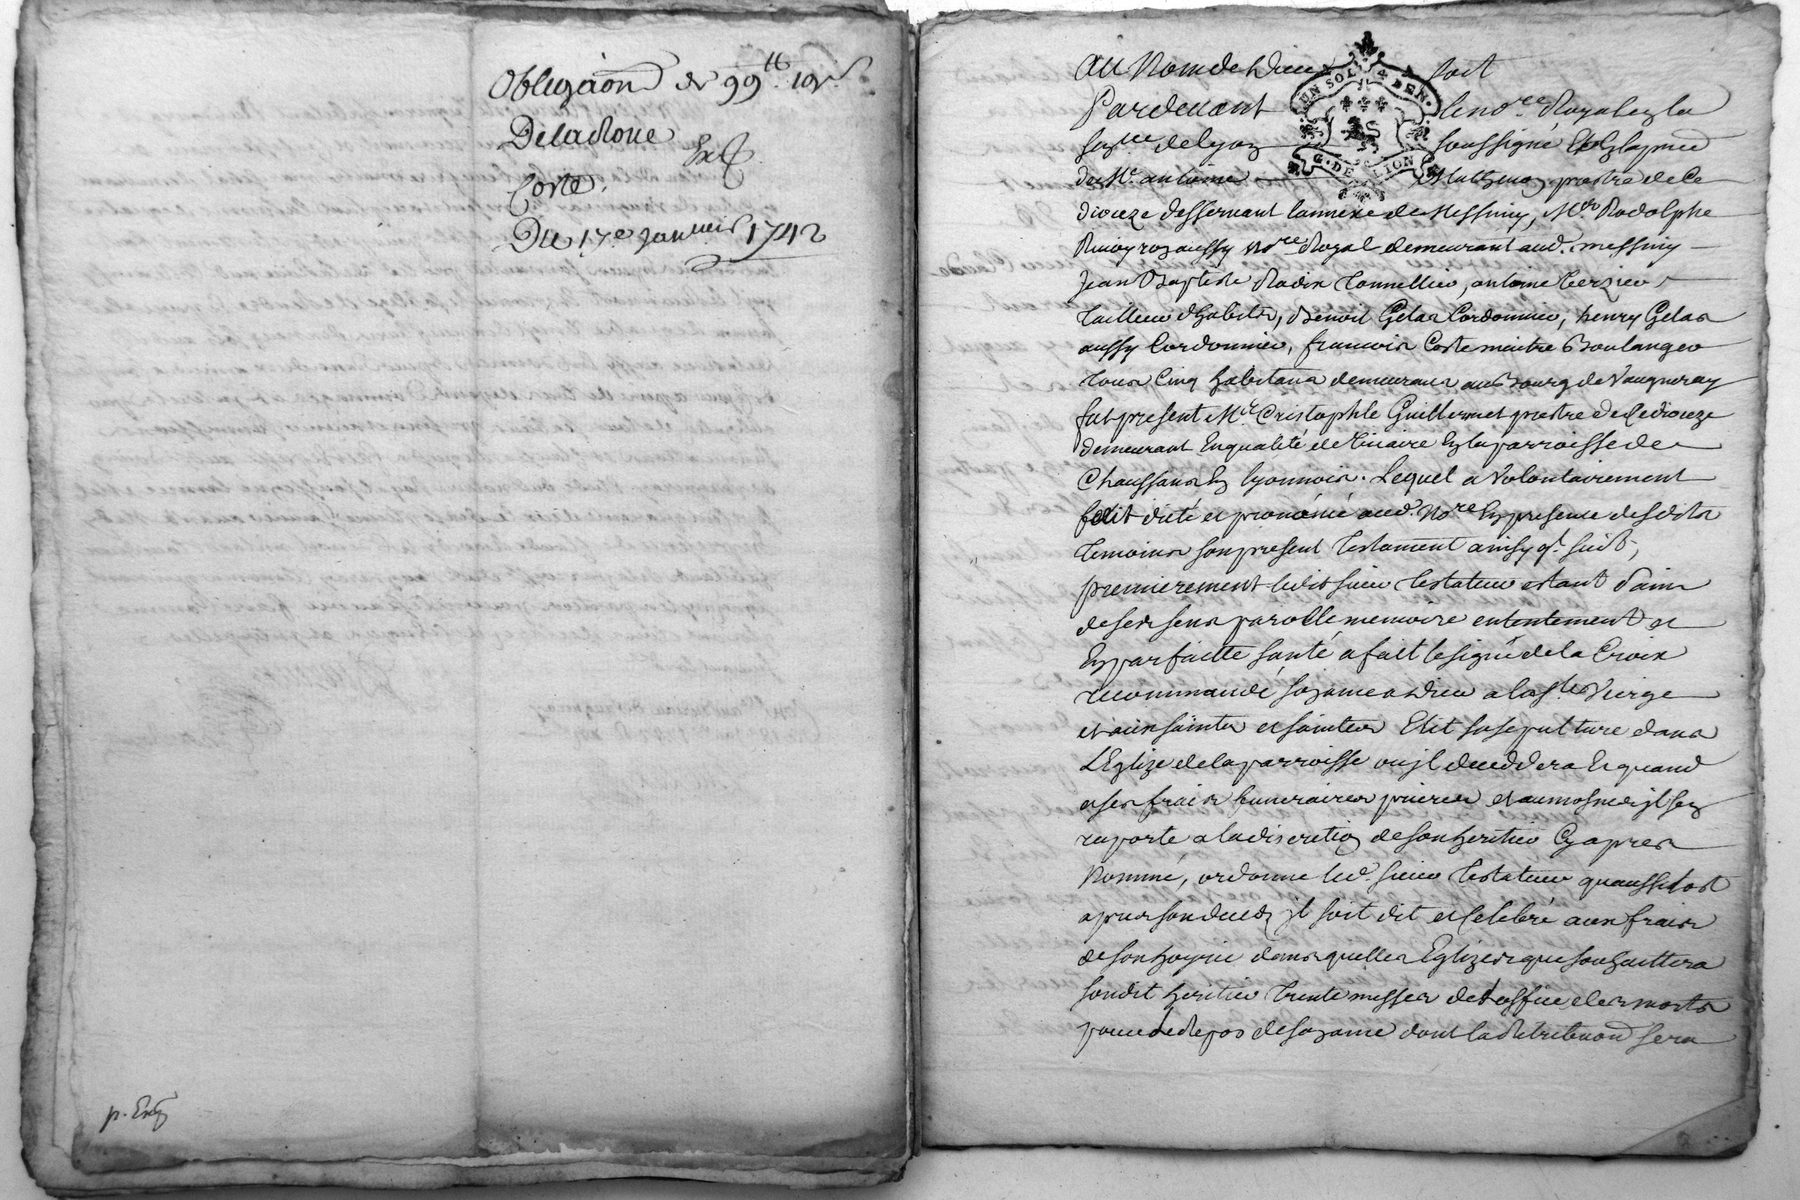 Obligãon de 99tt 19s
Delaroue
Exp
Coste.
Du 17e Janvier 1742
p. Exp
Au Nom de Dieu soit
UN SOL 4 DEN.
G. DE LION
Pardevant le nore Royal en la
senée de Lyon soussigné Et En la pnce
de Mre antoine Mathieu prestre de Ce
dioceze desservant lannexe de Messimy, Mer Rodolphe
aussy nore Royal demeurant aud. messimy
Jean Baptiste Radix Tonnellier, antoine Terzier
tailleur d'habits, Benoit Gelas Cordonnier, henry Gelas
aussy Cordonnier, francois Coste maitre Boulanger
tous Cinq habitans demeurans au Bourg de Vaugneray
fut present Mre Cristophle Guillermet prestre de Ce dioceze
demeurant En qualité de Vicaire En la parroisse de
Chaussans En lyonnois. Lequel a Volontairement
fait dicté et prononcé aud. Nore En presence desdits
temoins son present testament ainsy q. suit,
premierement ledit sieur testateur estant sain
de ses sens parolle memoire entendement et
En parfaitte santé a fait le signe de la Croix
recommandé son ame a Dieu a la ste Vierge
et aux saints et saintes Elit sa sepulture dans
L'Eglize de la parroisse ou jl deceddera Et quand
a ses frais funeraires prieres et aumosnes jl s'en
raporte a la discretion de son heritier Cy apres
Nommé, ordonne led. sieur testateur quaussitost
apres son deceds jl soit dit et Celebré aux frais
de son hoyrie dans quelles Eglizes que souhaittera
sondit heritier trente messes de l'office des morts
pour le Repos de son ame dont la Retribuõn sera